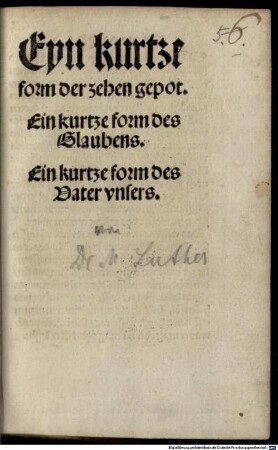 56.
Eyn kurtze
form der zehen gepot.
Ein kurtze form des
Glaubens.
Ein kurtze form des
Vater vnsers.
von
Dr M. Luther